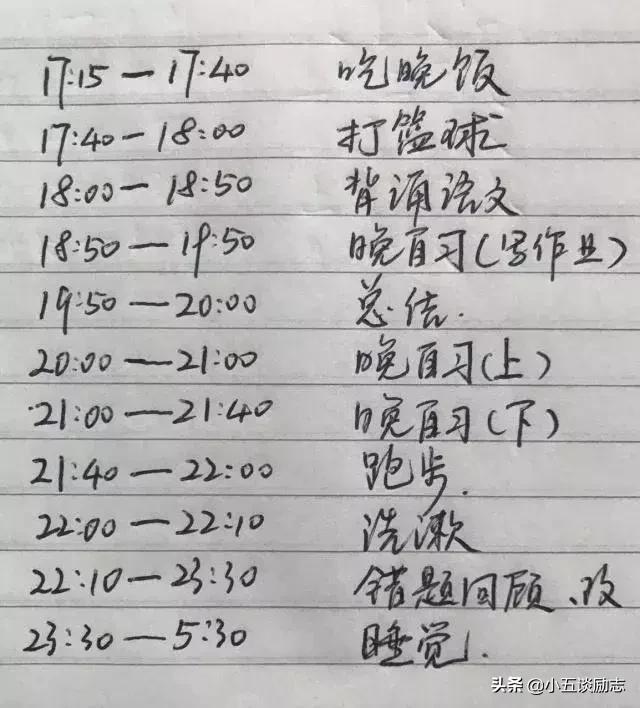 17:15 — 17:40 吃晚饭
17:40 — 18:00 打篮球
18:00 — 18:50 背诵语文
18:50 — 19:50 晚自习(写作业)
19:50 — 20:00 总结.
20:00 — 21:00 晚自习(上)
21:00 — 21:40 晚自习(下)
21:40 — 22:00 跑步.
22:00 — 22:10 洗漱
22:10 — 23:30 错题回顾、改
23:30 — 5:30 睡觉.
头条 @小五谈励志